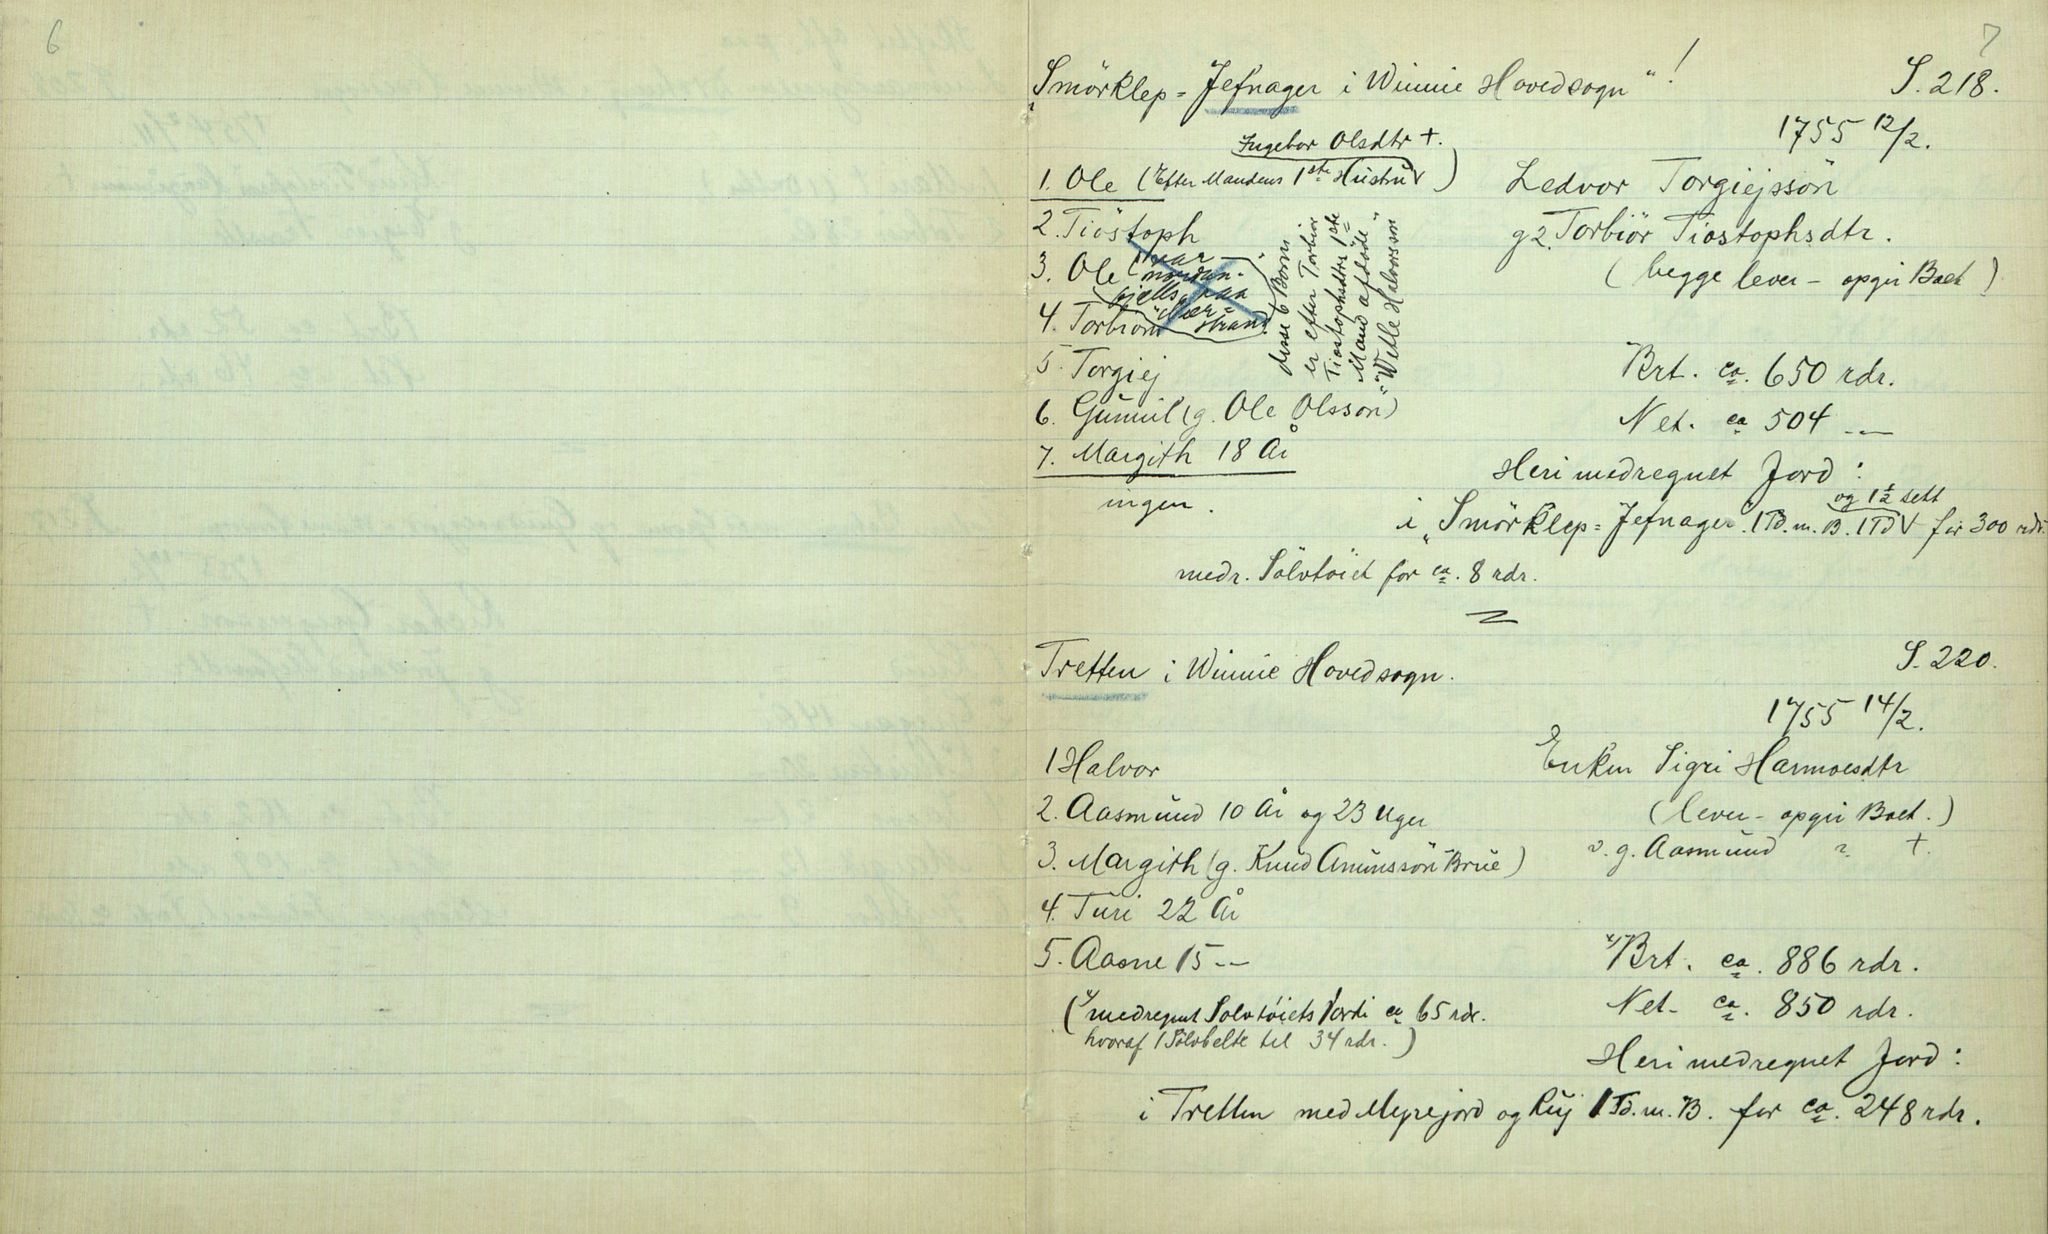 6
7
"Smörklep = Jefnager i Winnie Hovedsogn"!
S. 218.
1755 12/2.
Ingebor Olsdtr +.
1. Ole (Efter Mandens 1ste Hustru V)
Ledvor Torgiejssön
2. Tiöstoph
g 2. Torbiör Tiostophsdtr.
3. Ole (var nordan-fjells paa
(begge lever – opgir Boet)
4. Torbiorn
5. Torgiej
disse 6 Born
er efter Torbiör
Tiostophsdtrs 1ste
Mand afdöde
"Wetle Halvorssön"
Brt. ca. 650 rdr.
6. Gunnil (g. Ole Olsson)
Net. ca 504 –"–
7. Margith 18 År
ingen.
Heri medregnet Jord:
og 1½ sett
i "Smörklep = Jefnager. 1 Td. m. B. 1 Td V for 300 rdr.
medr. Sölvtöiet for ca. 8 rdr.
Tretten i Winnie Hovedsogn.
S. 220.
1755 14/2.
1 Halvor
Enken Sigri Hannoesdtr
2. Aasmund 10 År og 23 Uger
(lever – opgir Boet.)
3. Margith (g. Knud Anunssön Brue)
v. g. Aasmund ? +.
4. Turi 22 År
5. Aasne 15 –"–
x) Brt. ca. 886 rdr.
(x) medregnet Sölvtöiets Værdi ca 65 rdr.
Net. ca. 850 rdr.
hvoraf 1 Sölvbelte til 34 rdr.)
Heri medregnet Jord:
i Tretten med Myrejord og Ruj 1 Td. m. B. for ca. 248 rdr.